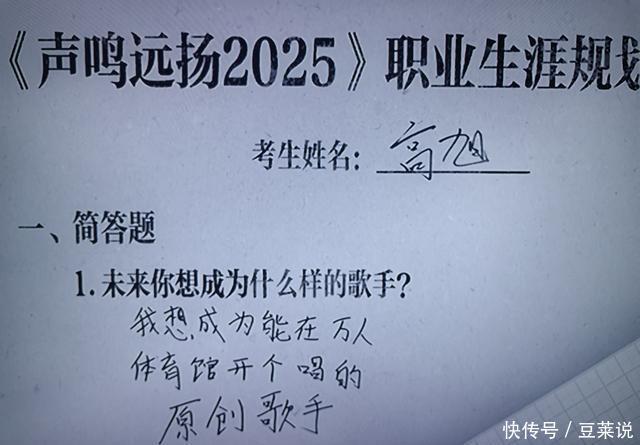 《声鸣远扬2025》职业生涯规划
考生姓名：高旭
一、简答题
1. 未来你想成为什么样的歌手？
我想成为能在万人
体育馆开个唱的
原创歌手
快传号／豆莱说